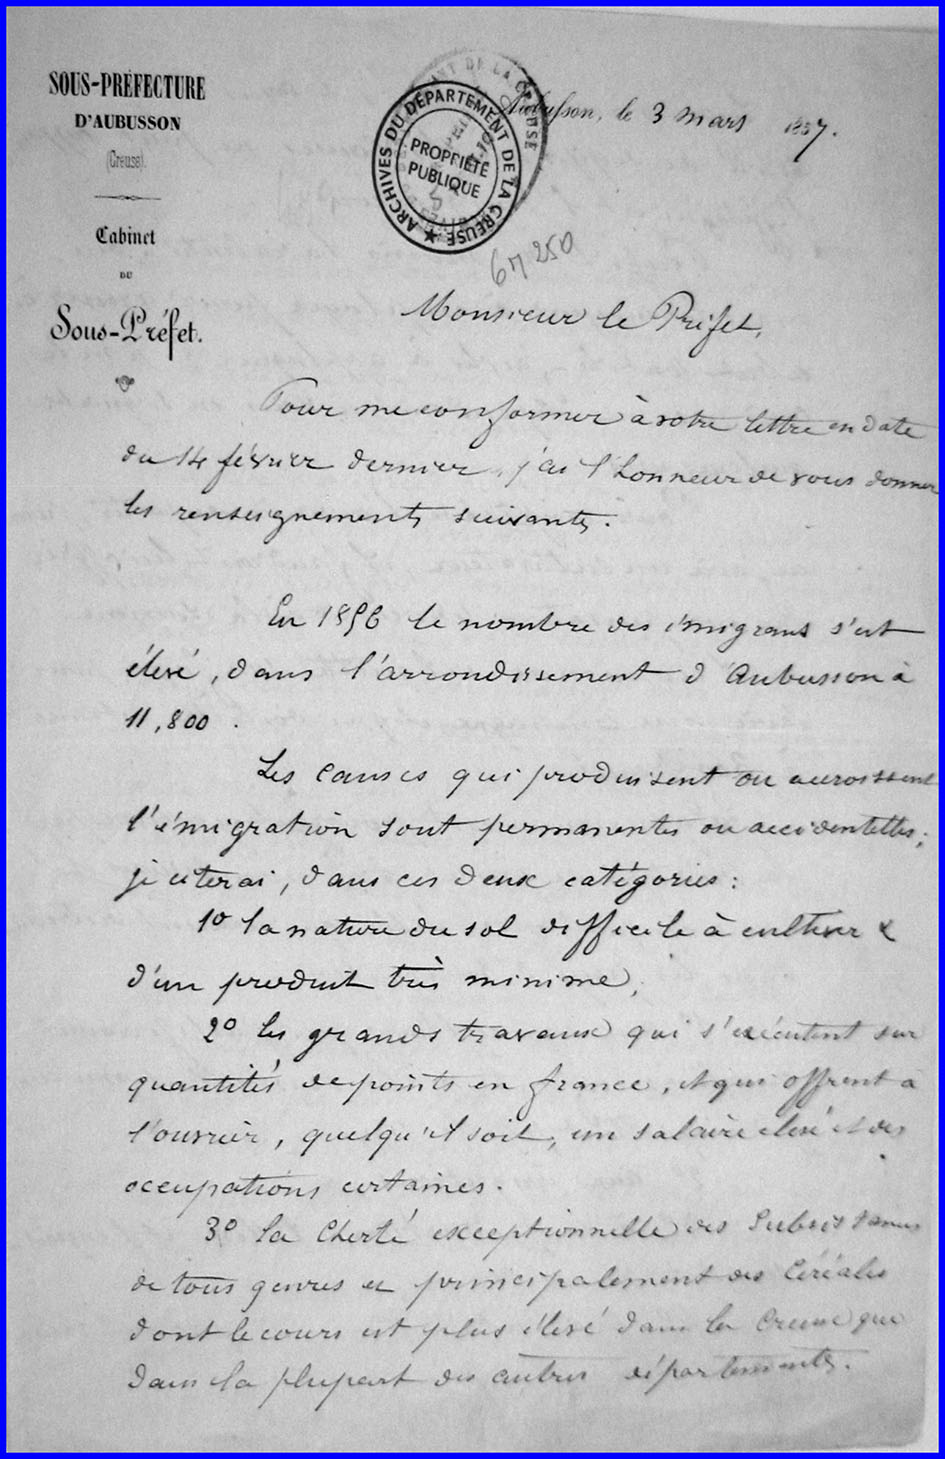 SOUS-PRÉFECTURE
D'AUBUSSON
(Creuse).
Cabinet
DU
Sous-Préfet.
ARCHIVES DU DÉPARTEMENT DE LA CREUSE
PROPRIÉTÉ
PUBLIQUE
Aubusson, le 3 mars 1857.
6M 250
Monsieur le Préfet,
Pour me conformer à votre lettre en date
du 14 février dernier, j'ai l'honneur de vous donner
les renseignements suivants.
En 1856 le nombre des émigrans s'est
élevé, dans l'arrondissement d'Aubusson à
11,800.
Les causes qui produisent ou accroissent
l'émigration sont permanentes ou accidentelles;
je citerai, dans ces deux catégories:
1o la nature du sol difficile à cultiver &
d'un produit très minime,
2o les grands travaux qui s'exécutent sur
quantités de points en france, et qui offrent à
l'ouvrier, quelqu'il soit, un salaire élevé et des
occupations certaines.
3o la Cherté exceptionnelle des Subsistances
de tous genres et principalement des Céréales
dont le cours est plus élevé dans la Creuse que
dans la plupart des autres départements.